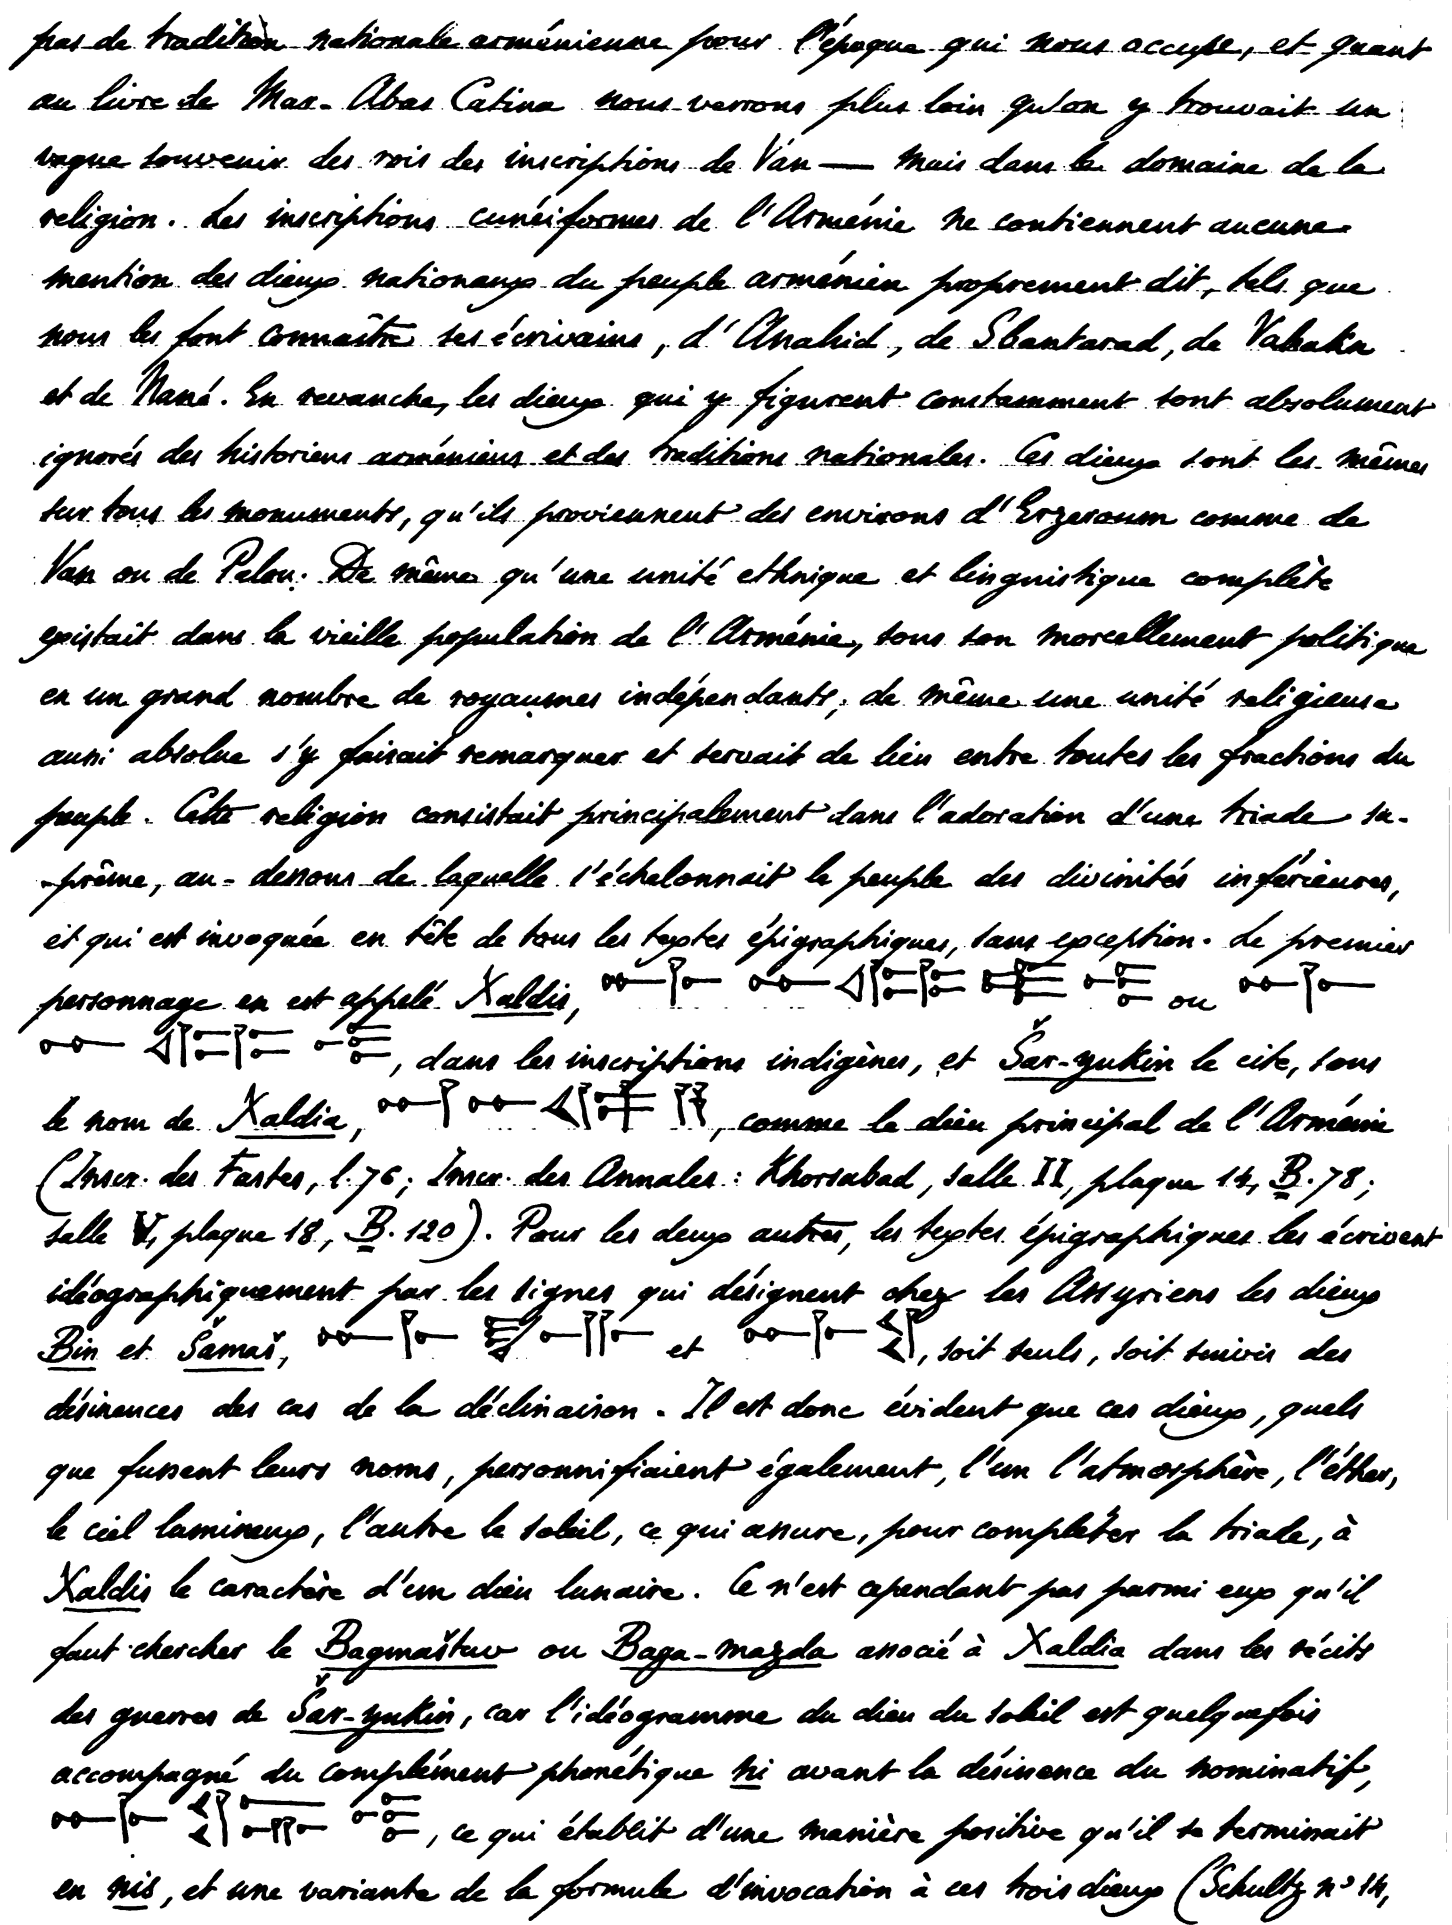 pas de tradition nationale arménienne pour l'époque qui nous occupe, et quant
au livre de Mar-Abas Catina nous verrons plus loin qu'on y trouvait un
vague souvenir des rois des inscriptions de Van — mais dans le domaine de la
religion. Les inscriptions cunéiformes de l'Arménie ne contiennent aucune
mention des dieux nationaux du peuple arménien proprement dit, tels que
nous les font connaître ses écrivains, d'Anahid, de Sbantarad, de Vahakn
et de Nané. En revanche, les dieux qui y figurent constamment sont absolument
ignorés des historiens arméniens et des traditions nationales. Ces dieux sont les mêmes
sur tous les monuments, qu'ils proviennent des environs d'Erzeroum comme de
Van ou de Palou. De même qu'une unité ethnique et linguistique complète
existait dans la vieille population de l'Arménie, sous son morcellement politique
en un grand nombre de royaumes indépendants, de même une unité religieuse
aussi absolue s'y faisait remarquer et servait de lien entre toutes les fractions du
peuple. Cette religion consistait principalement dans l'adoration d'une triade su-
-prême, au-dessous de laquelle s'échelonnait le peuple des divinités inférieures,
et qui est invoquée en tête de tous les textes épigraphiques, sans exception. Le premier
personnage en est appelé Xaldis, ou
, dans les inscriptions indigènes, et Šar-yukin le cite, sous
le nom de Xaldia, , comme le dieu principal de l'Arménie
(Inscr. des Fastes, l. 76; Inscr. des Annales : Khorsabad, salle II, plaque 14, B. 78;
salle V, plaque 18, B. 120). Pour les deux autres, les textes épigraphiques les écrivent
idéographiquement par les signes qui désignent chez les Assyriens les dieux
Bin et Šamaš, et , soit seuls, soit suivis des
désinences des cas de la déclinaison. Il est donc évident que ces dieux, quels
que fussent leurs noms, personnifiaient également, l'un l'atmosphère, l'éther,
le ciel lumineux, l'autre le soleil, ce qui assure, pour compléter la triade, à
Xaldis le caractère d'un dieu lunaire. Ce n'est cependant pas parmi eux qu'il
faut chercher le Bagmaštuv ou Baga-mazda associé à Xaldia dans les récits
des guerres de Šar-yukin, car l'idéogramme du dieu du soleil est quelquefois
accompagné du complément phonétique ni avant la désinence du nominatif,
, ce qui établit d'une manière positive qu'il se terminait
en nis, et une variante de la formule d'invocation à ces trois dieux (Schultz n° 14,